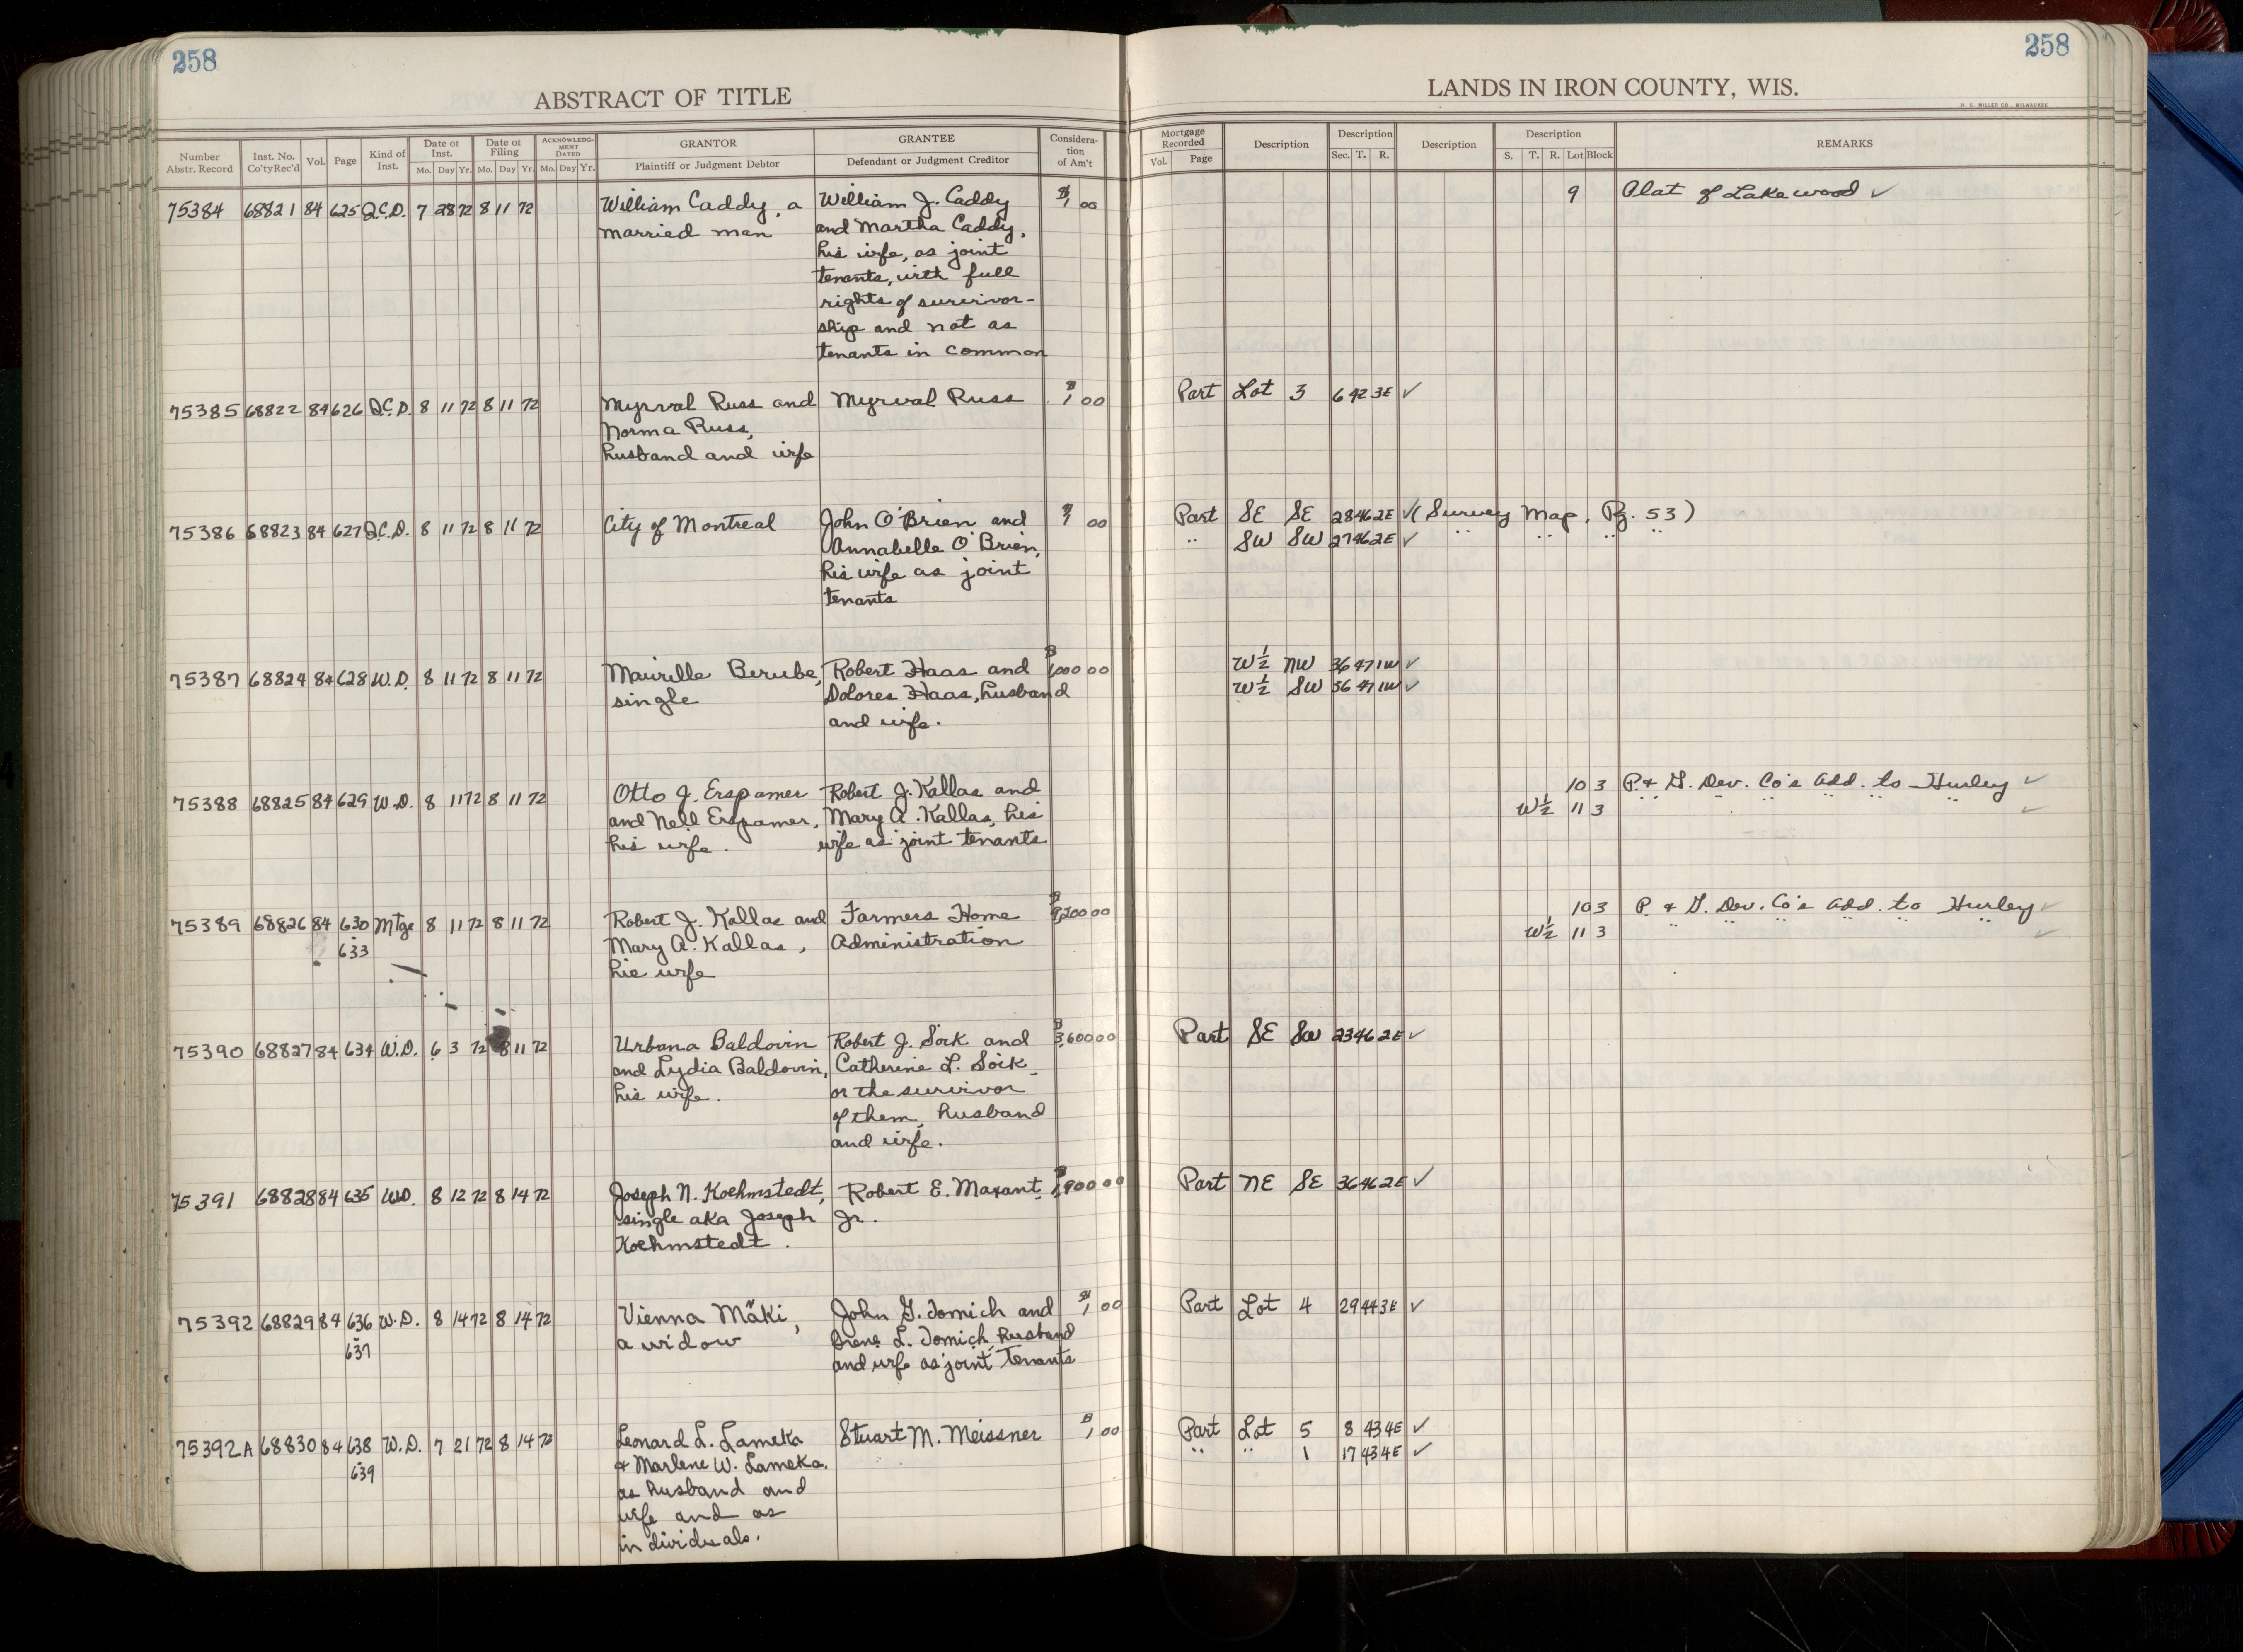 258
258
ABSTRACT OF TITLE
LANDS IN IRON COUNTY, WIS.
H. C. MILLER CO., MILWAUKEE
Number Abstr. Record
Inst. No. Co'tyRec'd
Vol.
Page
Kind of Inst.
Date of Inst.
Mo. Day Yr.
Date of Filing
Mo. Day Yr.
ACKNOWLEDGMENT DATED
Mo. Day Yr.
GRANTOR
Plaintiff or Judgment Debtor
GRANTEE
Defendant or Judgment Creditor
Consideration of Am't
Mortgage Recorded
Vol. Page
Description
Description
Sec. T. R.
Description
Description
S. T. R. Lot Block
REMARKS
75384 68821 84 625 Q.C.D. 7 28 72 8 11 72 William Caddy, a William J. Caddy $1 00 9 Plat of Lakewood ✓
married man and Martha Caddy,
his wife, as joint
tenants, with full
rights of survivor-
ship and not as
tenants in common
75385 68822 84 626 Q.C.D. 8 11 72 8 11 72 Myrval Russ and Myrval Russ $1 00 Part Lot 3 6 42 3E ✓
Norma Russ,
husband and wife
75386 68823 84 627 Q.C.D. 8 11 72 8 11 72 City of Montreal John O'Brien and $1 00 Part SE SE 28 46 2E ✓ (Survey Map, Pg. 53)
Annabelle O'Brien, " SW SW 27 46 2E ✓ " " " "
his wife as joint
tenants
75387 68824 84 628 W.D. 8 11 72 8 11 72 Maurille Berube, Robert Haas and $1,000 00 W½ NW 36 47 1W ✓
single Dolores Haas, husband W½ SW 36 47 1W ✓
and wife.
75388 68825 84 629 W.D. 8 11 72 8 11 72 Otto J. Erspamer Robert J. Kallas and 10 3 P. & G. Dev. Co's Add. to Hurley ✓
and Nell Erspamer, Mary A. Kallas, his W½ 11 3 " " " " " " ✓
his wife. wife as joint tenants
75389 68826 84 630 Mtge 8 11 72 8 11 72 Robert J. Kallas and Farmers Home $9,200 00 10 3 P. & G. Dev. Co's Add. to Hurley ✓
633 Mary A. Kallas, Administration W½ 11 3 " " " " " " ✓
his wife
75390 68827 84 634 W.D. 6 3 72 8 11 72 Urbana Baldovin Robert J. Soik and $3,600 00 Part SE SW 23 46 2E ✓
and Lydia Baldovin, Catherine L. Soik,
his wife. or the survivor
of them, husband
and wife.
75391 68828 84 635 W.D. 8 12 72 8 14 72 Joseph N. Koehmstedt, Robert E. Maxant, $1,900 00 Part NE SE 36 46 2E ✓
single aka Joseph Jr.
Koehmstedt.
75392 68829 84 636 W.D. 8 14 72 8 14 72 Vienna Mäki, John G. Tomich and $1 00 Part Lot 4 29 44 3E ✓
637 a widow Irene L. Tomich, husband
and wife as joint tenants
75392A 68830 84 638 W.D. 7 21 72 8 14 72 Leonard L. Lameka Stuart M. Meissner $1 00 Part Lot 5 8 43 4E ✓
639 & Marlene W. Lameka, " " 1 17 43 4E ✓
as husband and
wife and as
individuals.